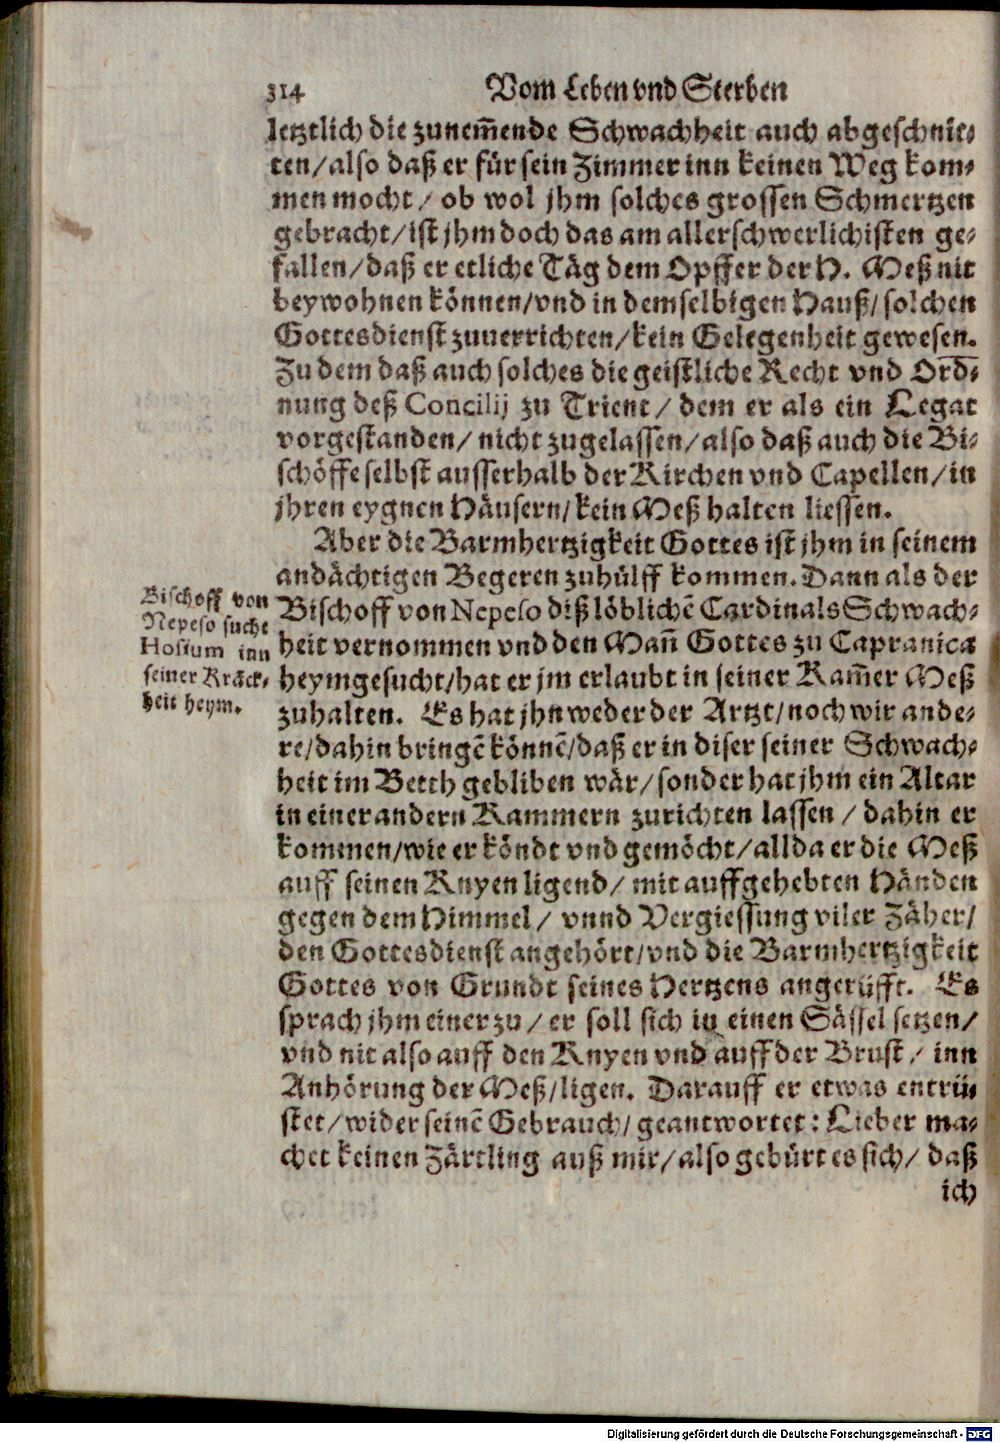 314 Vom Leben vnd Sterben
letztlich die zunem̄ende Schwachheit auch abgeschnit⸗
ten/also daß er für sein Zimmer inn keinen Weg kom⸗
men mocht/ ob wol jhm solches grossen Schmertzen
gebracht/ist jhm doch das am allerschwerlichisten ge⸗
fallen/daß er etliche Täg dem Opffer der H. Meß nit
beywohnen können/vnd in demselbigen Hauß/solchen
Gottesdienst zuuerrichten/kein Gelegenheit gewesen.
Zu dem daß auch solches die geistliche Recht vnd Ord⸗
nung deß Concilij zu Trient/ dem er als ein Legat
vorgestanden/ nicht zugelassen/also daß auch die Bi⸗
schöffe selbst ausserhalb der Kirchen vnd Capellen/in
jhren eygnen Häusern/kein Meß halten liessen.
Aber die Barmhertzigkeit Gottes ist jhm in seinem
andächtigen Begeren zuhülff kommen. Dann als der
Bischoff von Nepeso diß löblichē Cardinals Schwach⸗
heit vernommen vnd den Mañ Gottes zu Capranica
heymgesucht/hat er jm erlaubt in seiner Kam̄er Meß
zuhalten. Es hat jhn weder der Artzt/noch wir ande⸗
re/dahin bringē könnē/daß er in diser seiner Schwach⸗
heit im Betth gebliben wär/sonder hat jhm ein Altar
in einer andern Kammern zurichten lassen/ dahin er
kommen/wie er köndt vnd gemöcht/allda er die Meß
auff seinen Knyen ligend/ mit auffgehebten Händen
gegen dem Himmel/ vnnd Vergiessung viler Zäher/
den Gottesdienst angehört/vnd die Barmhertzigkeit
Gottes von Grundt seines Hertzens angerüfft. Es
sprach jhm einer zu/ er soll sich in einen Sässel setzen/
vnd nit also auff den Knyen vnd auff der Brust/ inn
Anhörung der Meß/ligen. Darauff er etwas entrü⸗
stet/wider seinē Gebrauch/geantwortet: Lieber ma⸗
chet keinen Zärtling auß mir/also gebürt es sich/ daß
ich
Bischoff von
Nepeso sucht
Hosium inn
seiner Kräck⸗
heit heym.
Digitalisierung gefördert durch die Deutsche Forschungsgemeinschaft - DFG